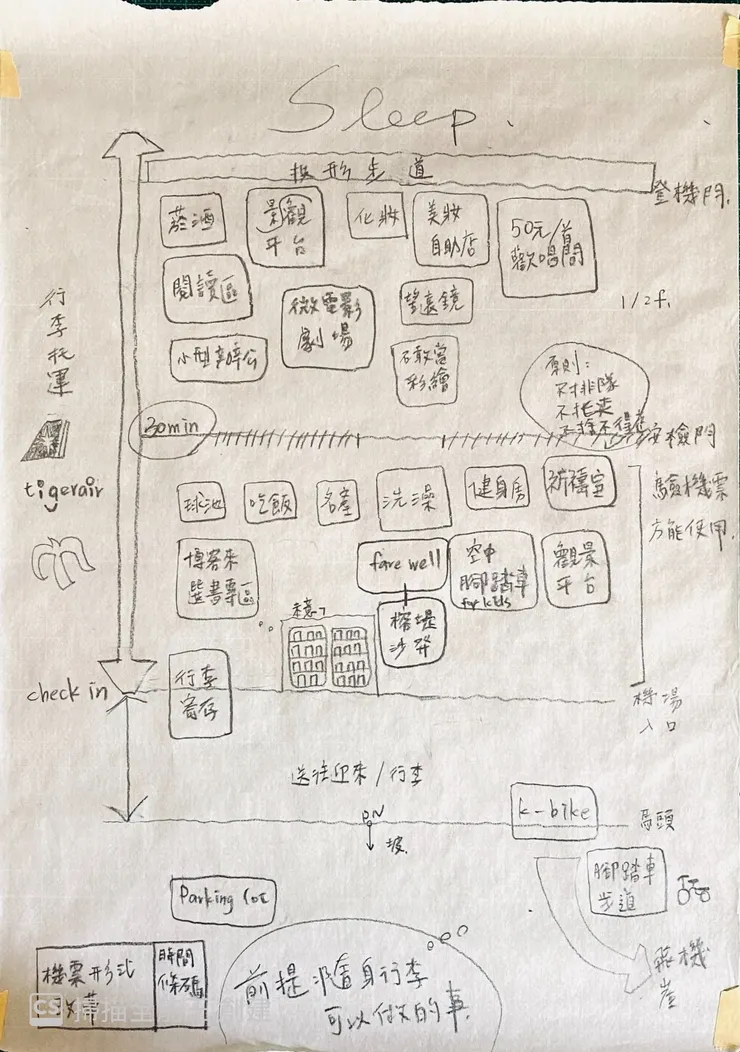 Sleep.
梯形步道
登機門.
菸酒
景觀
平台
化妝
美妝
自助店
50元/首
歡唱間
閱讀區
微電影
劇場
望遠鏡
1/2f.
行李托運
小型辦公
彩繪
原則:
不排隊
30min
安檢門
tigerair
球池
吃飯
名產
洗澡
健身房
祈禱室
驗機票
方能使用.
博客來
書專區
farewell
空中
腳踏車
for kids
觀景
平台
沙發
check in
行李
寄存
機場
入口
送往迎來/行李
k-bike
碼頭
坡.
腳踏車
步道
Parking lot
飛機
崖
機票形式
時間
條碼
前提:隨身行李
可以做的事.
CS 掃描全